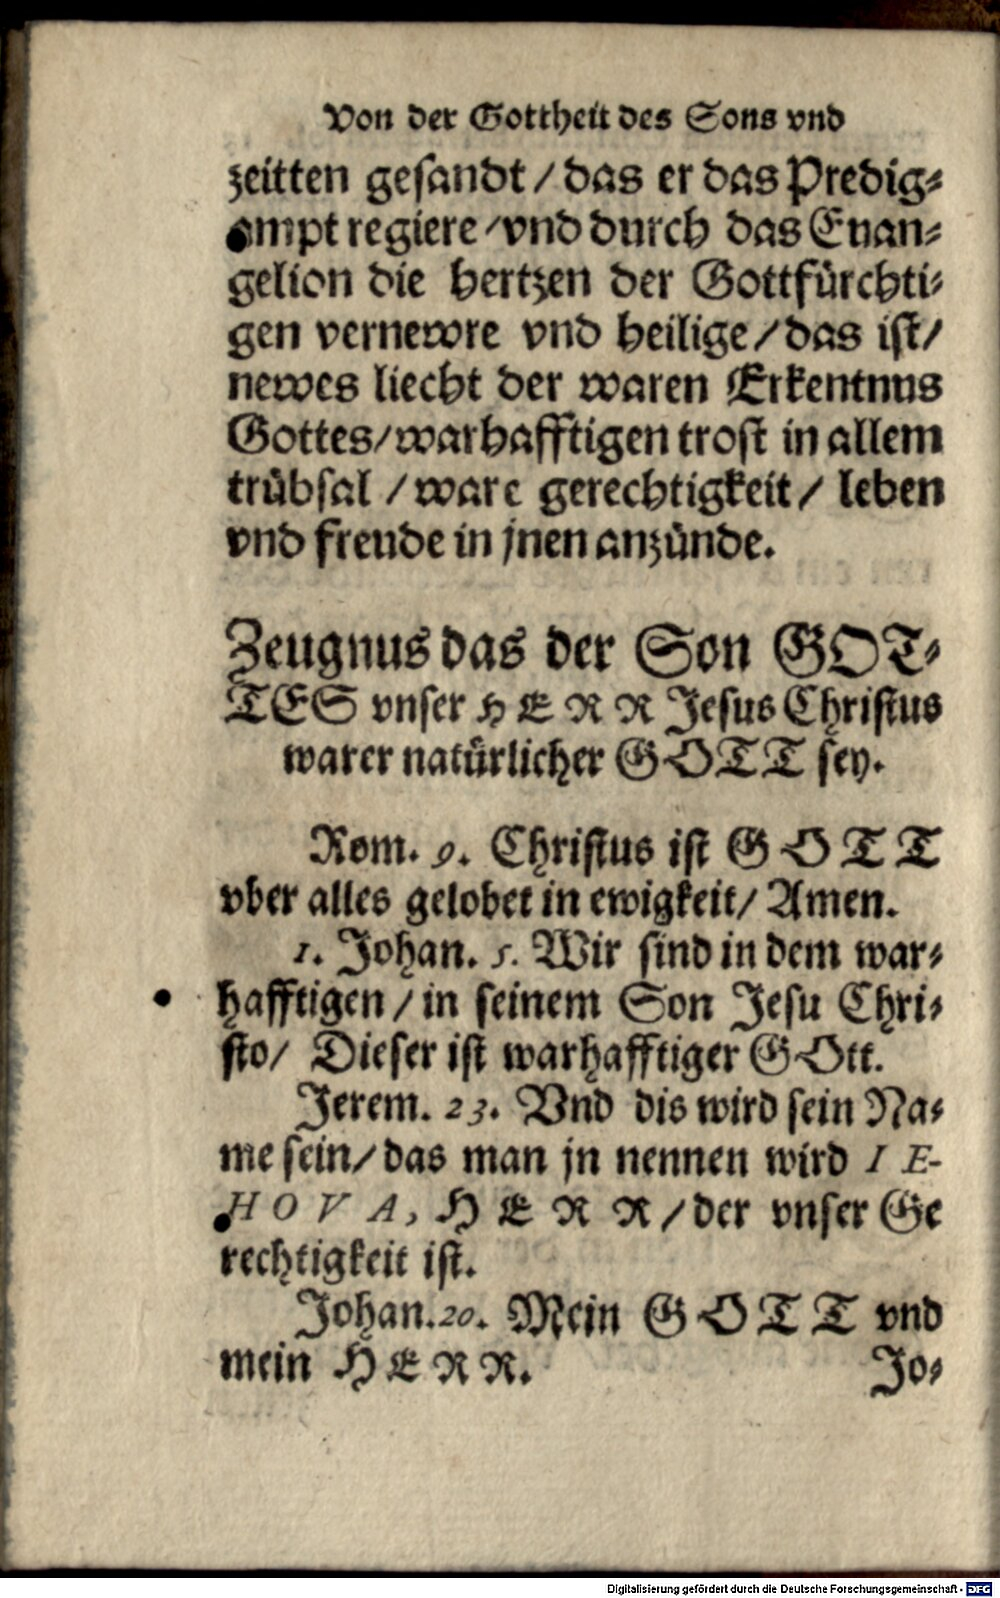 Von der Gottheit des Sons vnd
zeitten gesandt / das er das Predig-
ampt regiere / vnd durch das Euan-
gelion die hertzen der Gottfürchti-
gen vernewre vnd heilige / das ist /
newes liecht der waren Erkentnus
Gottes / warhafftigen trost in allem
trübsal / ware gerechtigkeit / leben
vnd freude in jnen anzünde.
Zeugnus das der Son GOT-
TES vnser HERR Jesus Christus
warer natürlicher GOTT sey.
Rom. 9. Christus ist GOTT
vber alles gelobet in ewigkeit / Amen.
1. Johan. 5. Wir sind in dem war-
hafftigen / in seinem Son Jesu Chri-
sto / Dieser ist warhafftiger GOtt.
Jerem. 23. Vnd dis wird sein Na-
me sein / das man jn nennen wird IE-
HOVA, HERR / der vnser Ge
rechtigkeit ist.
Johan. 20. Mein GOTT vnd
mein HERR.
Jo-
Digitalisierung gefördert durch die Deutsche Forschungsgemeinschaft - DFG